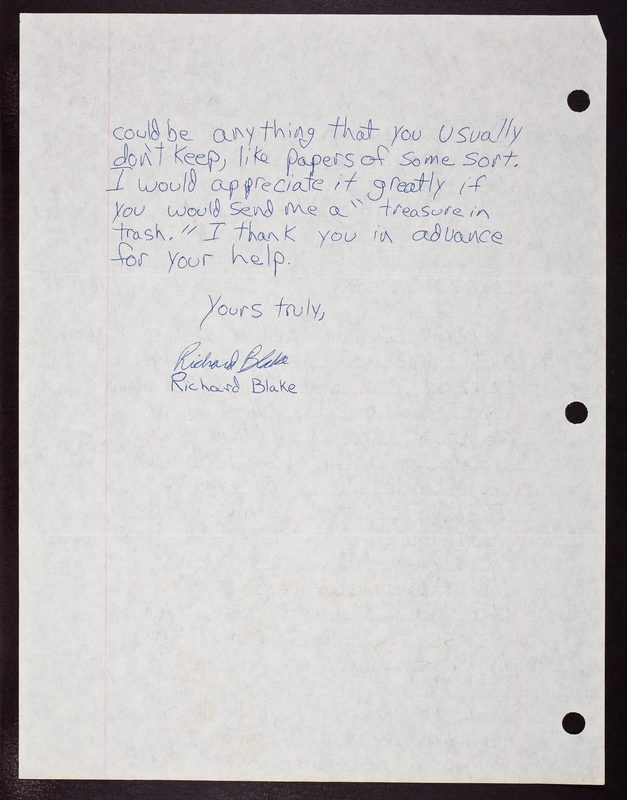 could be anything that you usually
don't keep, like papers of some sort.
I would appreciate it greatly if
you would send me a "treasure in
trash." I thank you in advance
for your help.
Yours truly,
Richard Blake
Richard Blake